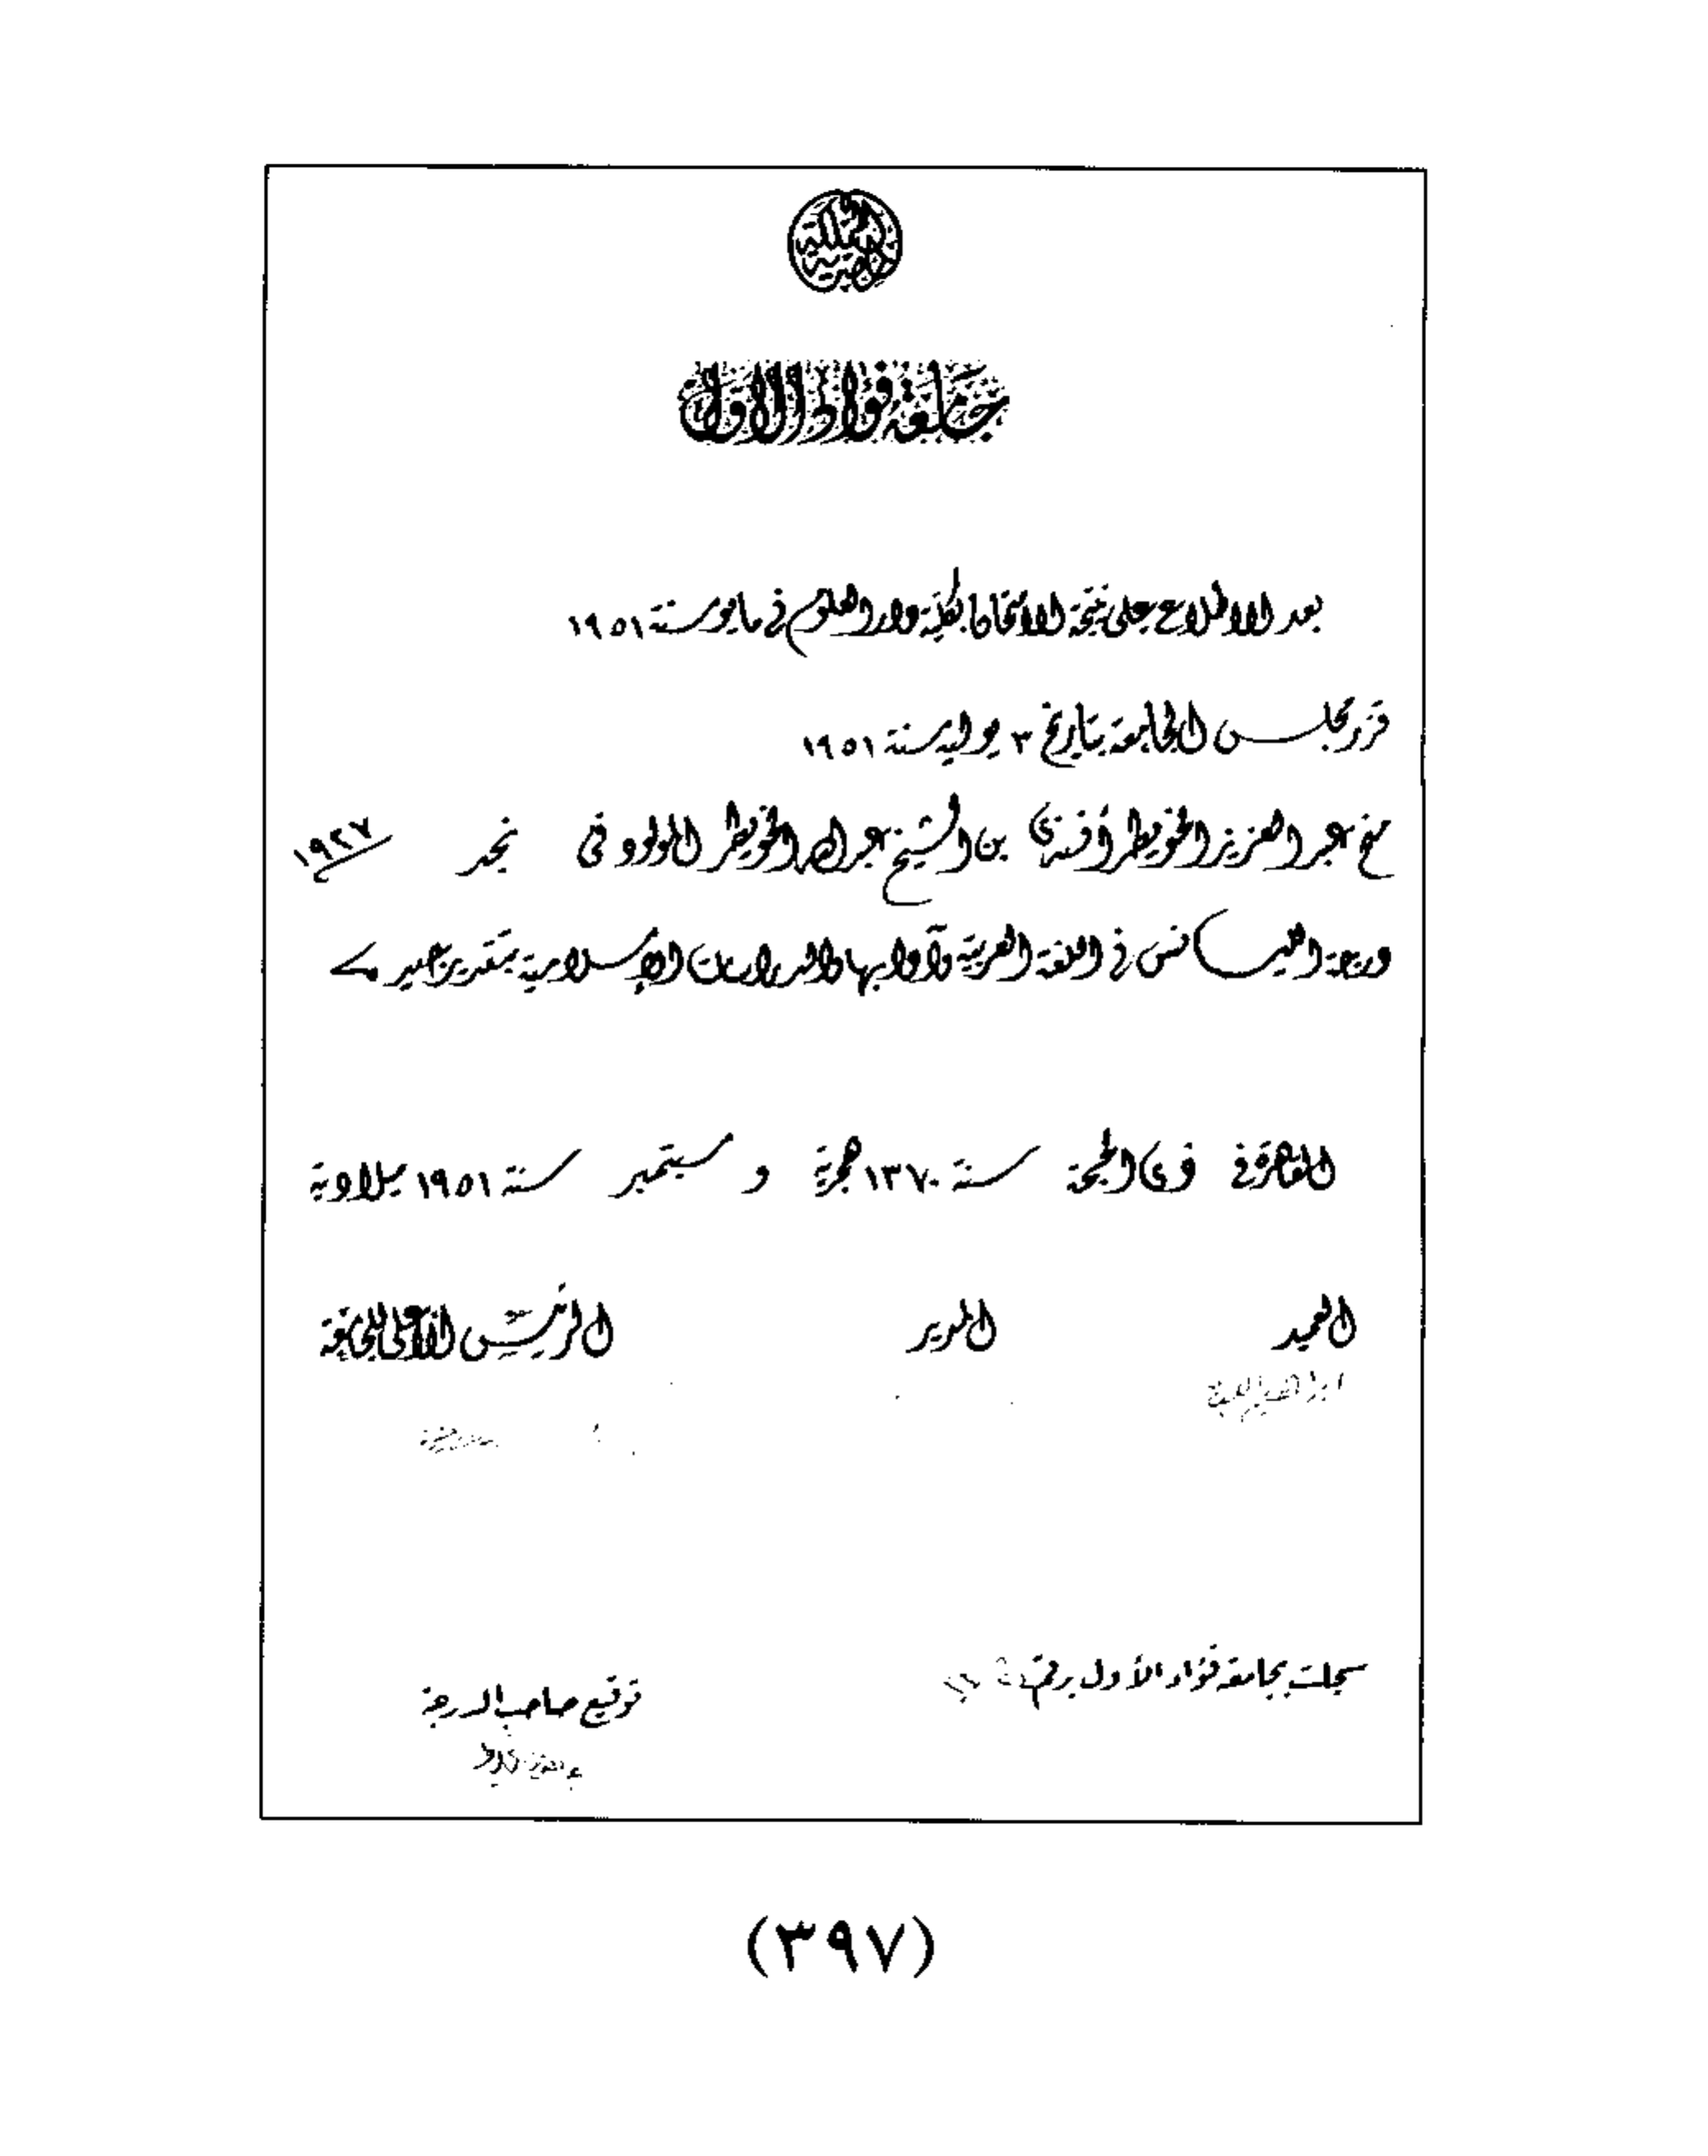 المملكة المصرية
جامعة فؤاد الأول
بعد الاطلاع على نتيجة الامتحان بكلية دار العلوم في مايو سنة ١٩٥١
قرر مجلس الجامعة بتاريخ ٣ يوليه سنة ١٩٥١
منح عبد العزيز الخويطر أفندى بن الشيخ عبد الله الخويطر المولود فى نجد ١٩٢٧
درجة الليسانس في اللغة العربية وآدابها والدراسات الإسلامية بتقدير جيد
القاهرة في ذى الحجة سنة ١٣٧٠ هجرية و سبتمبر سنة ١٩٥١ ميلادية
العميد المدير الرئيس الأعلى للجامعة
سجلت بجامعة فؤاد الأول برقم
توقيع صاحب الدرجة
(٣٩٧)